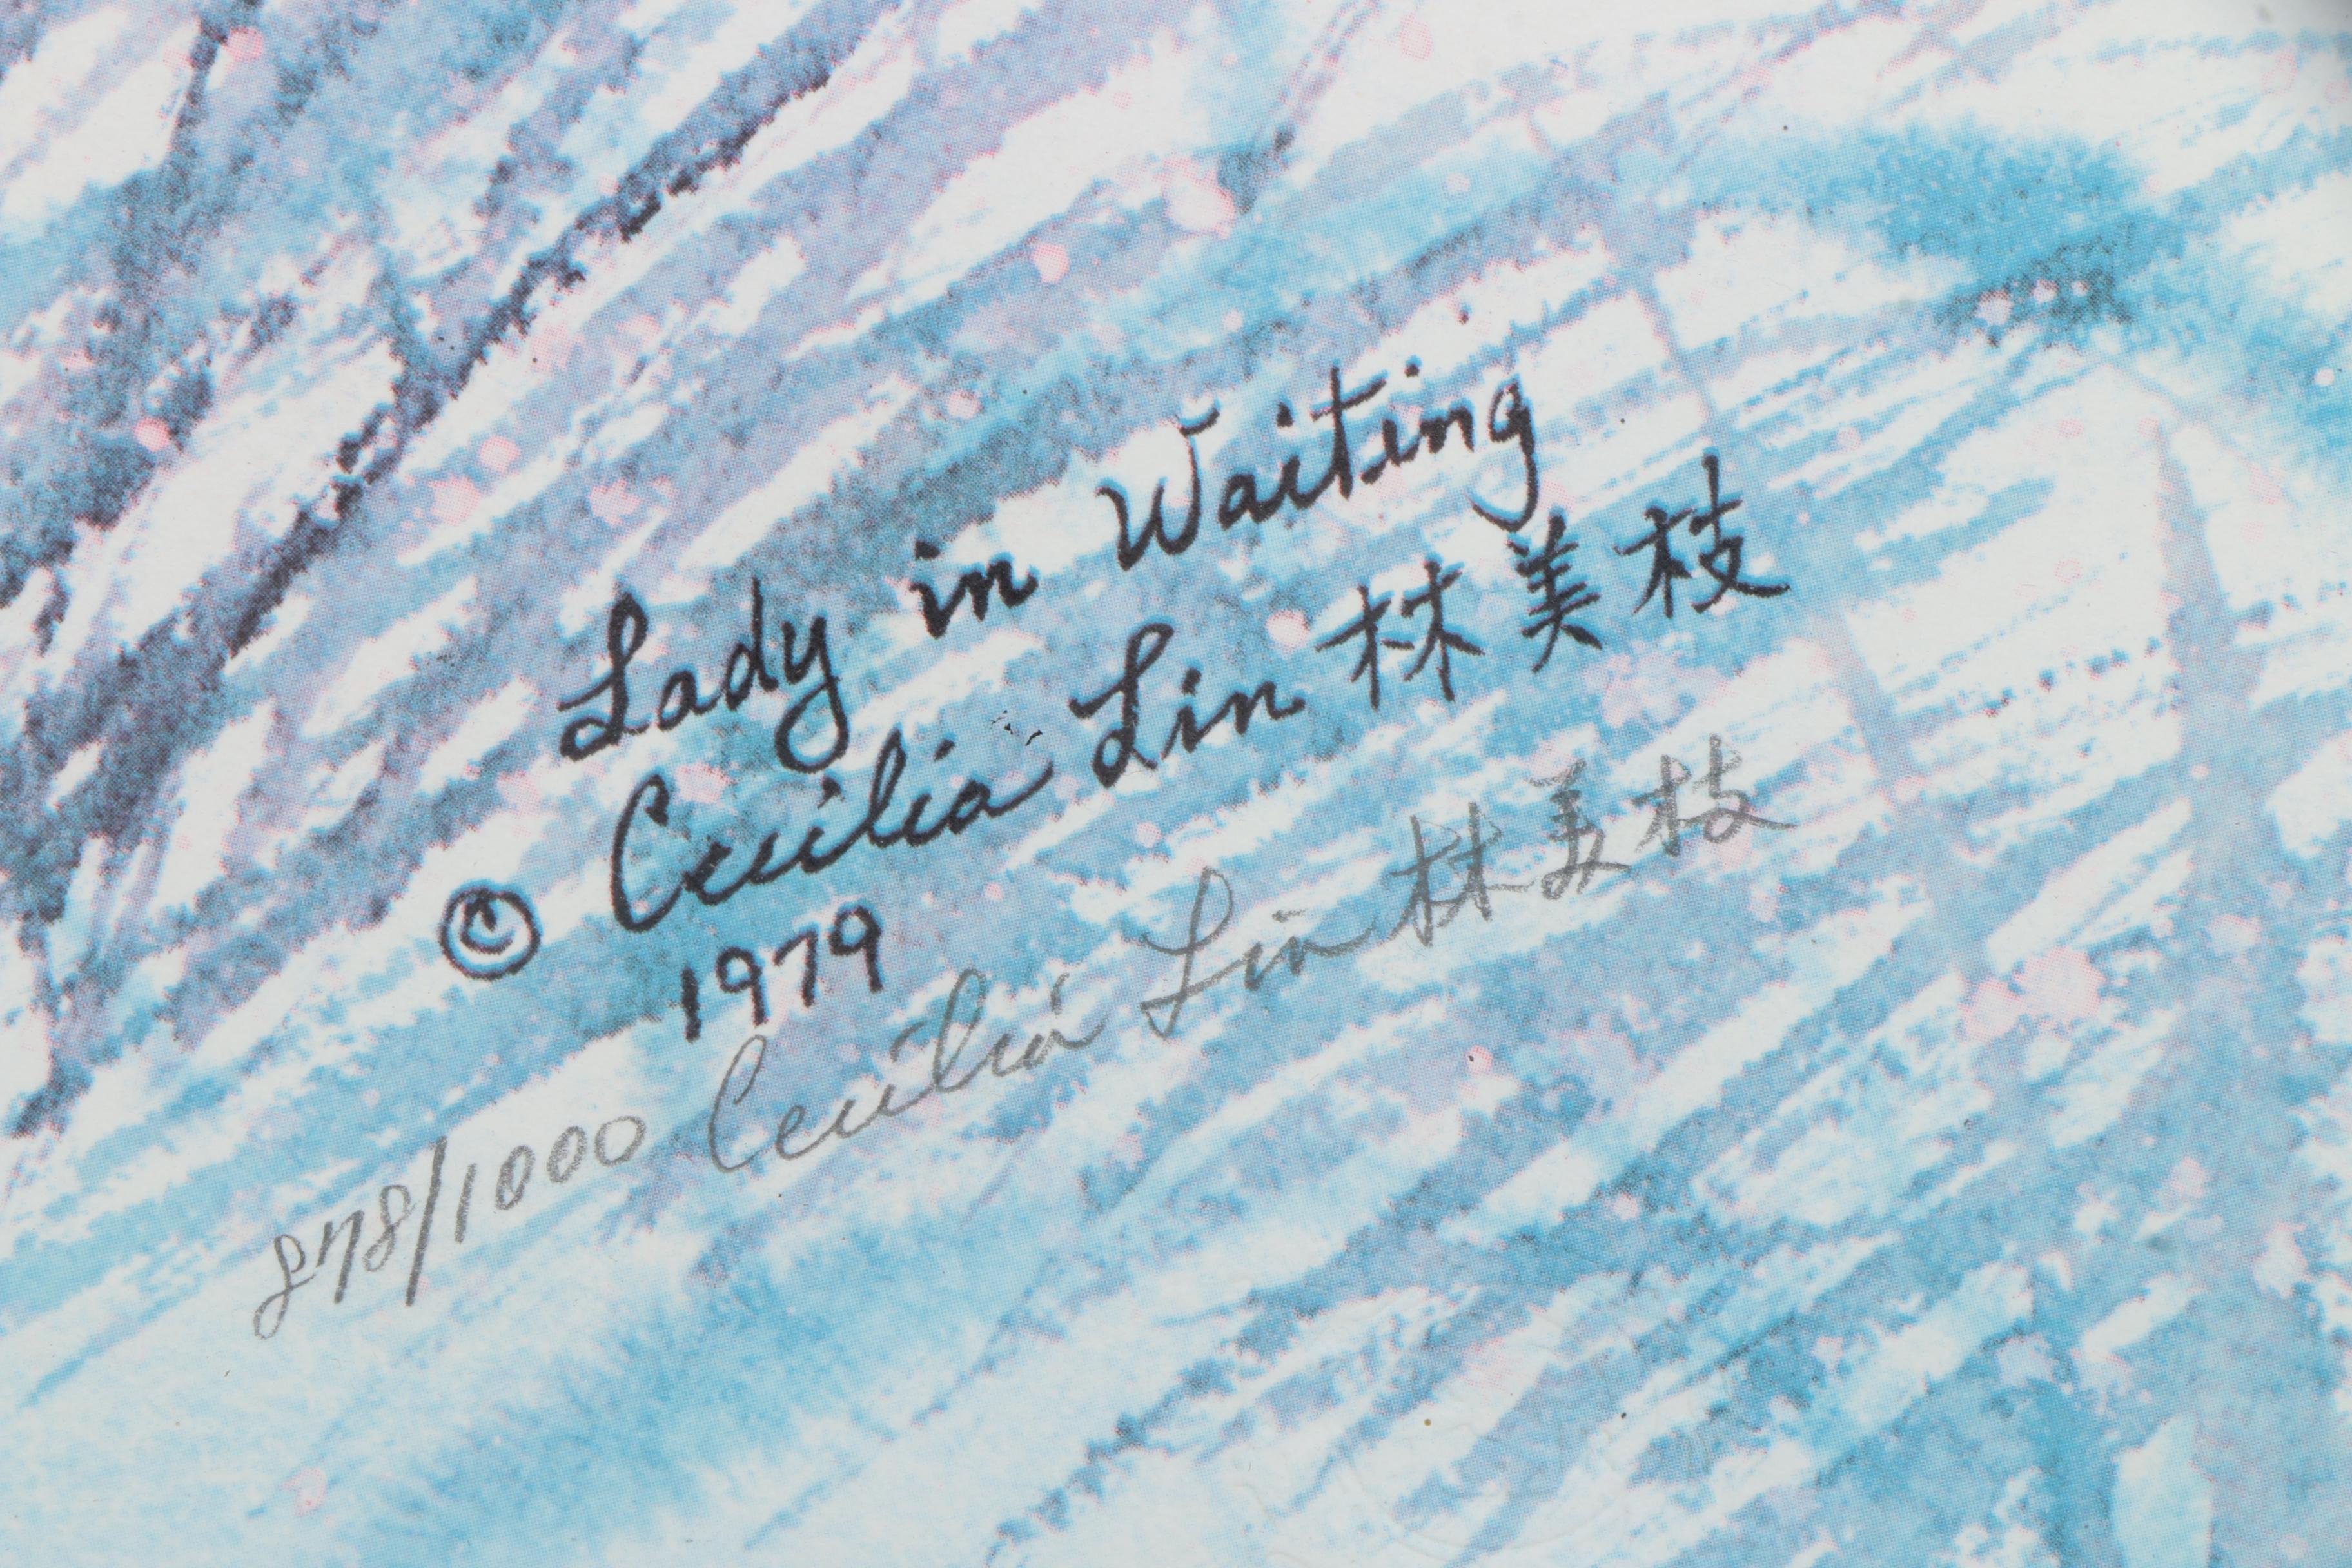 Lady in Waiting
© Cecilia Lin 林美枝
1979
878/1000 Cecilia Lin 林美枝